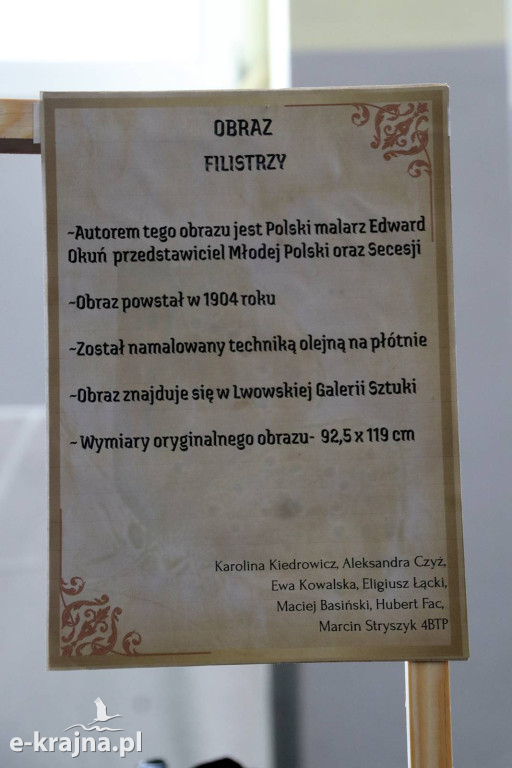 OBRAZ
FILISTRZY
~Autorem tego obrazu jest Polski malarz Edward
Okuń przedstawiciel Młodej Polski oraz Secesji
~Obraz powstał w 1904 roku
~Został namalowany techniką olejną na płótnie
~Obraz znajduje się w Lwowskiej Galerii Sztuki
~ Wymiary oryginalnego obrazu- 92,5 x 119 cm
Karolina Kiedrowicz, Aleksandra Czyż,
Ewa Kowalska, Eligiusz Łącki,
Maciej Basiński, Hubert Fac,
Marcin Stryszyk 4BTP
e-krajna.pl